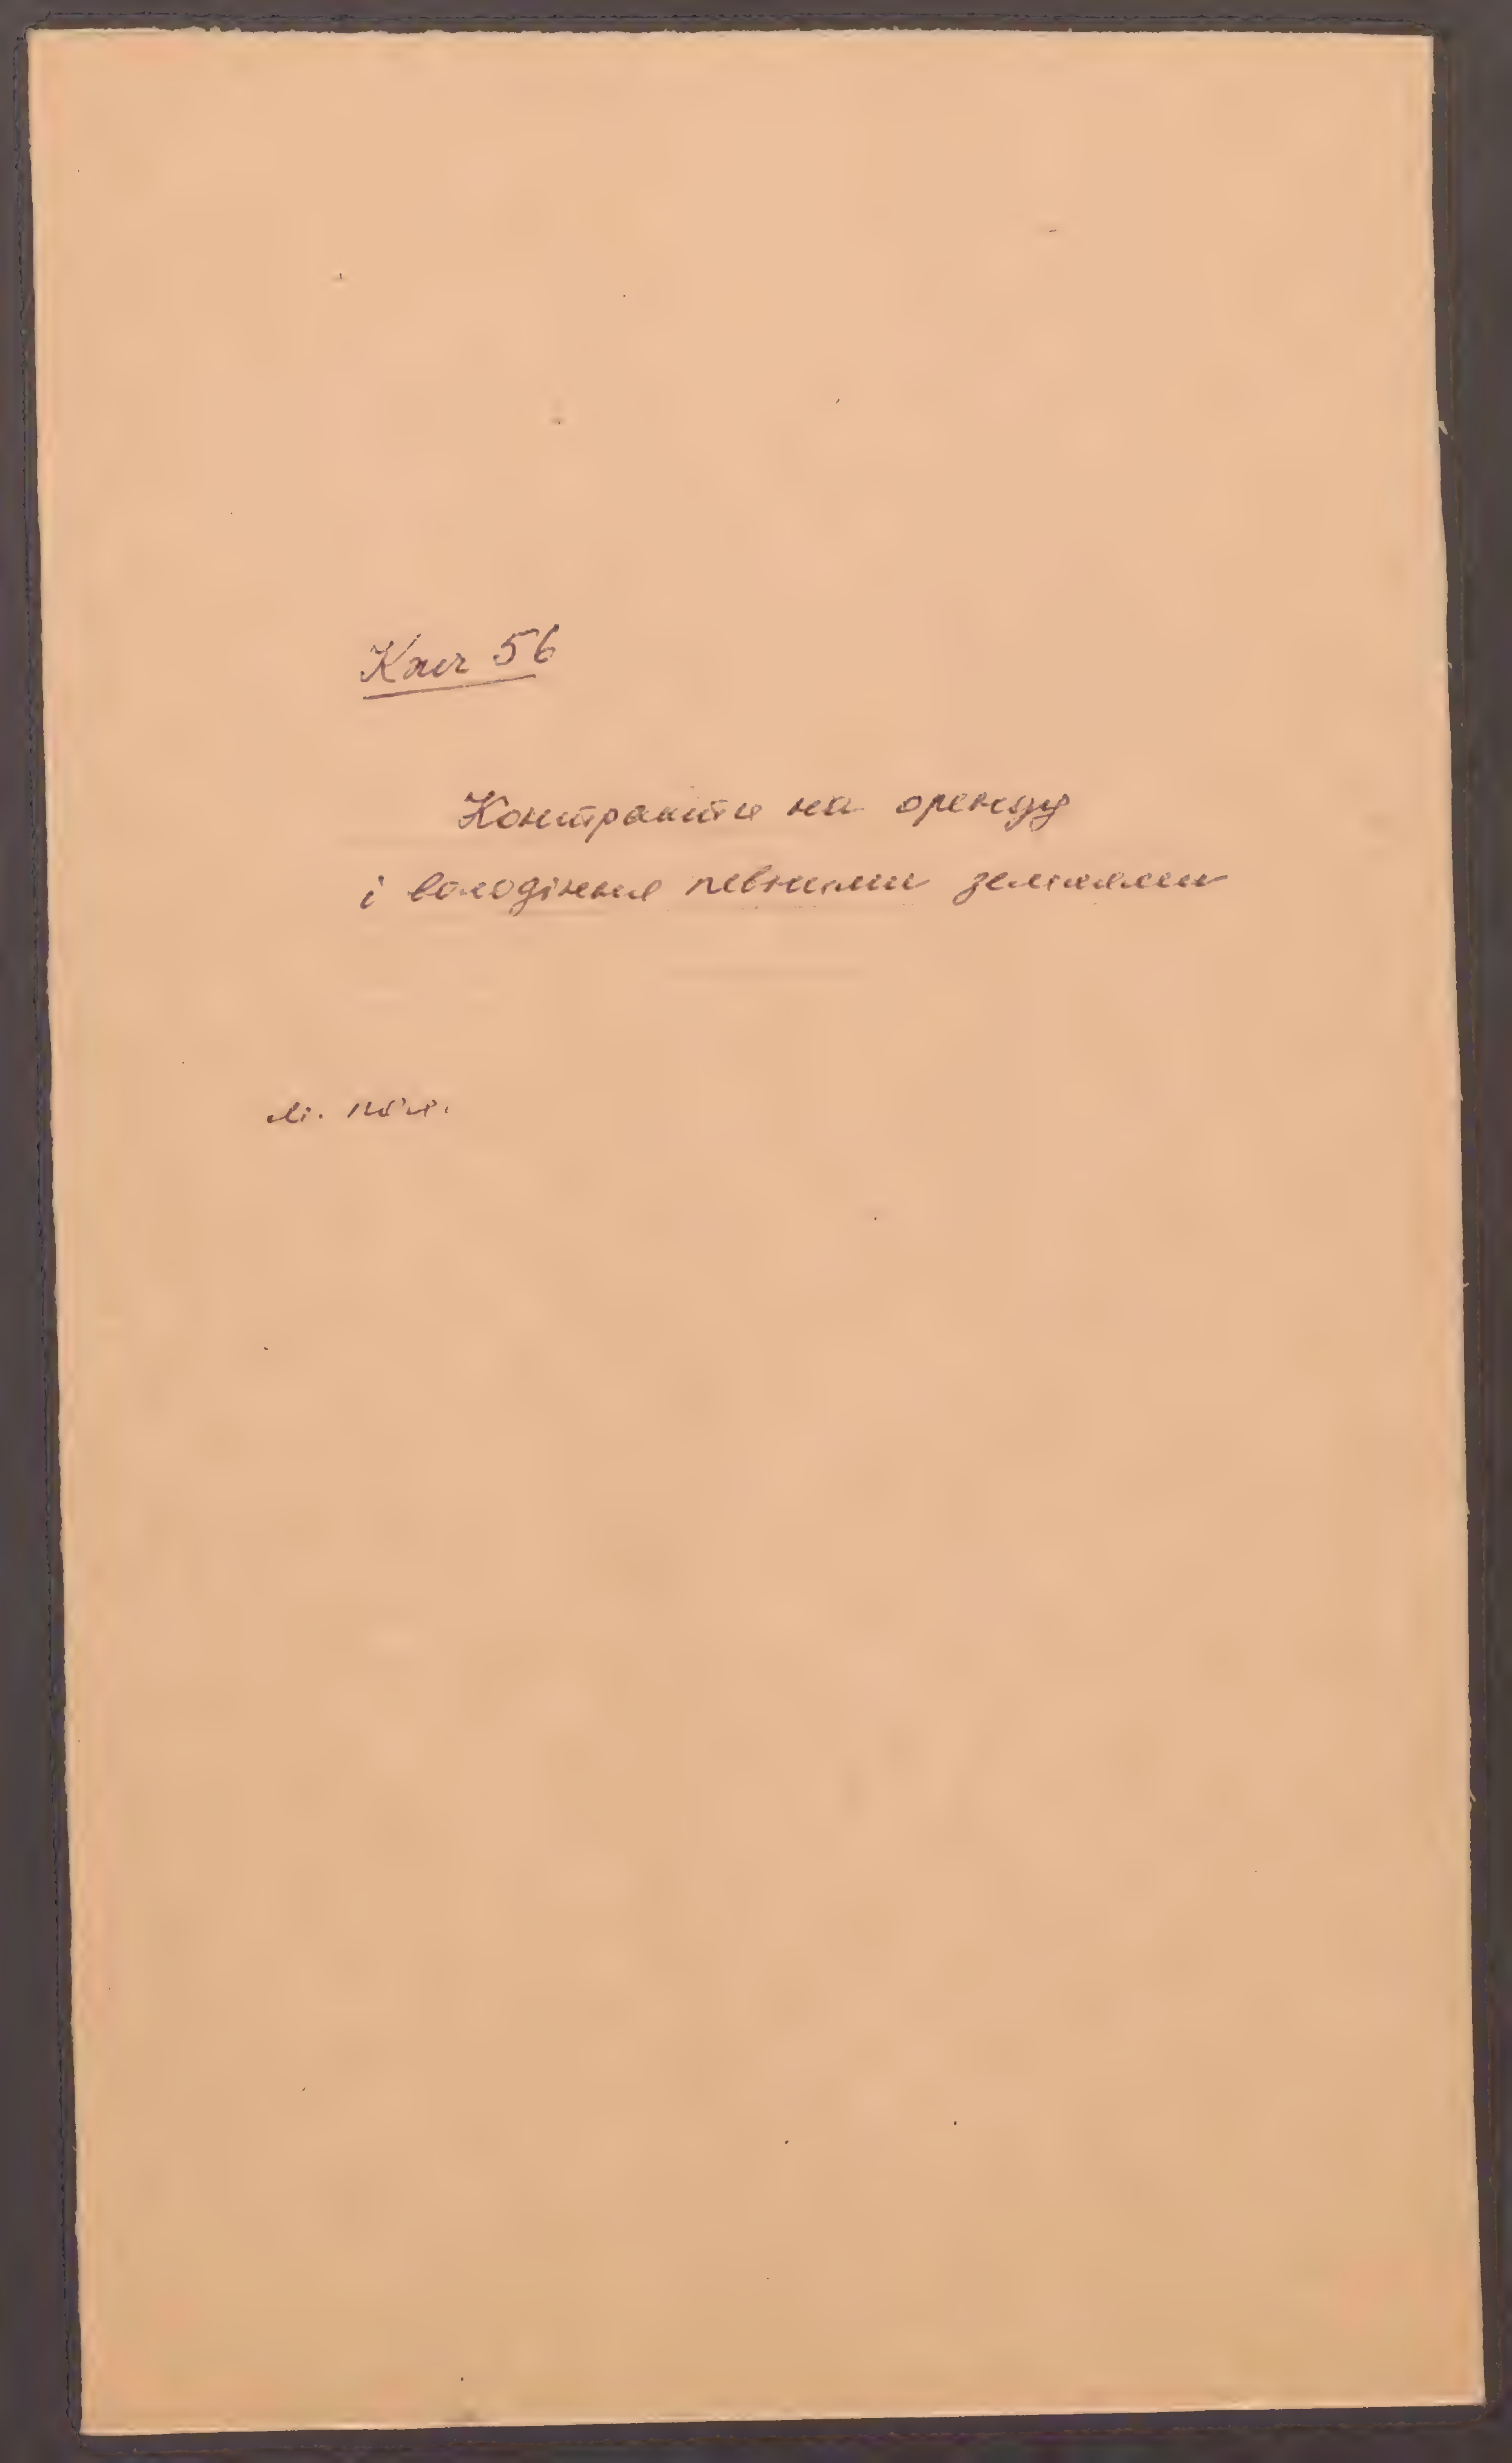 56
Контракти на оренду
і володіння певними землями